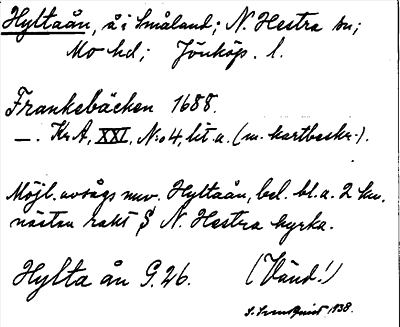 Hyltaån, å i Småland; N. Hestra sn;
Mo hd; Jönköp. l.
Frankebäcken 1688.
—. Kr.A, XXI, N:o 4, lit. a. (m. kartbeskr.).
Möjl. avsågs nuv. Hyltaån, bel. bl. a. 2 km.
nästan rakt S N. Hestra kyrka.
Hylta ån G. 26. (Vänd!)
1938.